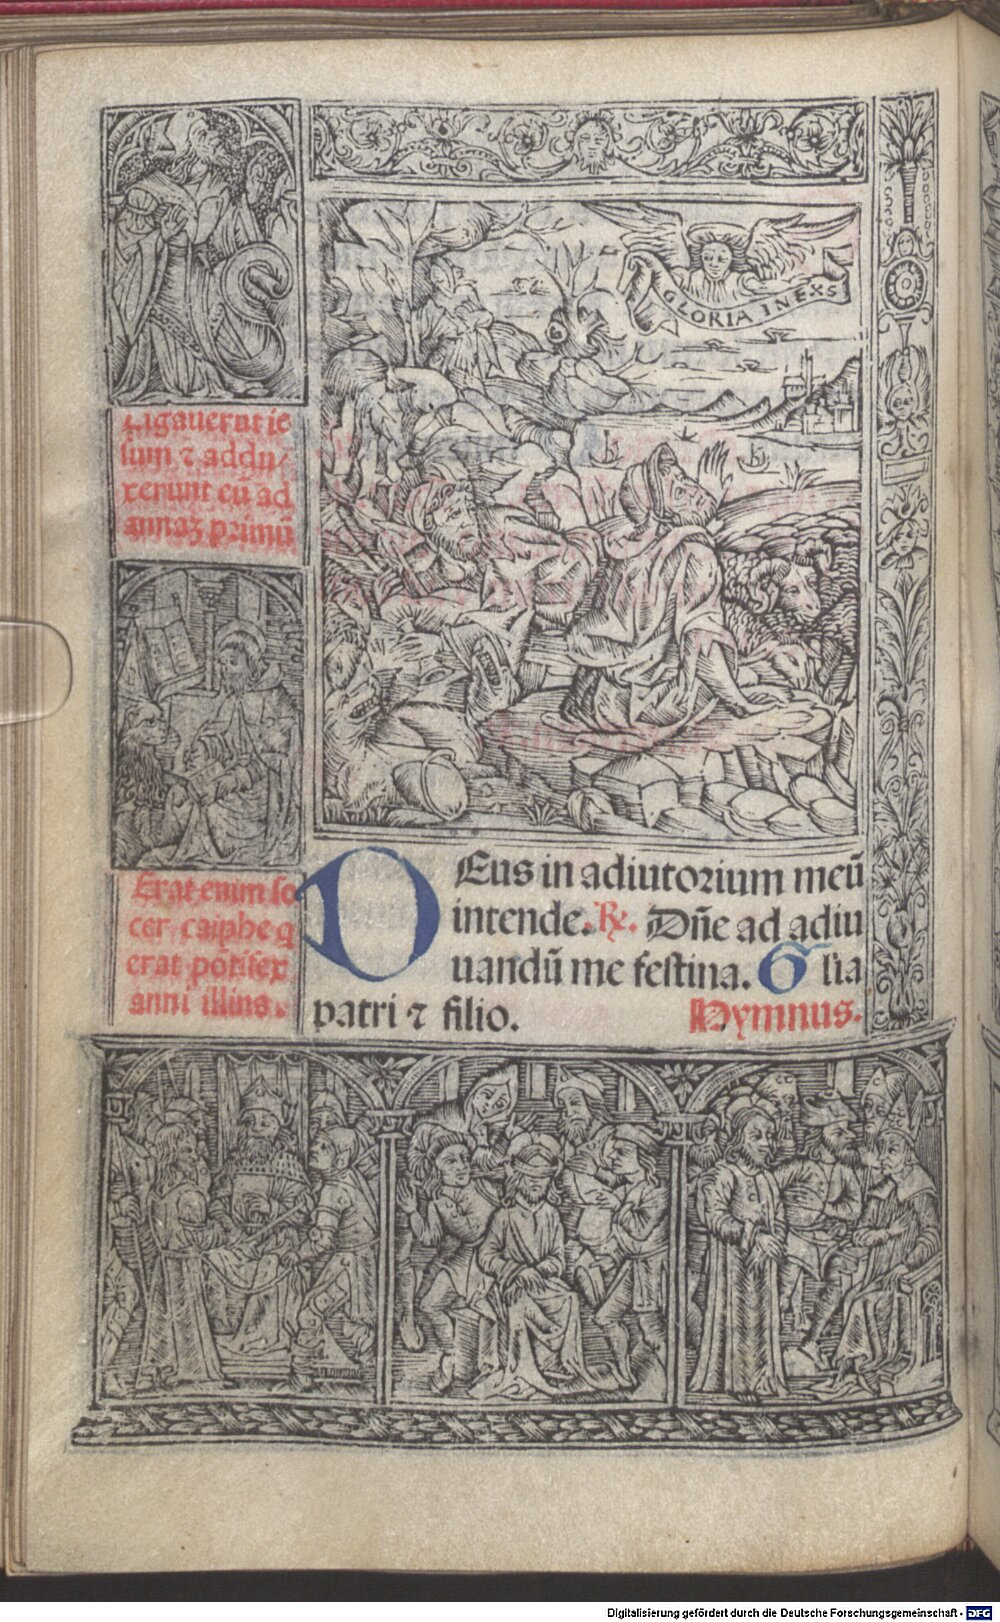 GLORIA IN EXS
Ligauerūt ie
sum ⁊ addu/
xerunt eū ad
annaʒ primū
Erat enim so
cer caiphe q
erat pōtifex
anni illius.
DEus in adiutorium meū
intende. ℞. Dn̄e ad adiu
uandū me festina. Glīa
patri ⁊ filio. Hymnus.
Digitalisierung gefördert durch die Deutsche Forschungsgemeinschaft - DFG